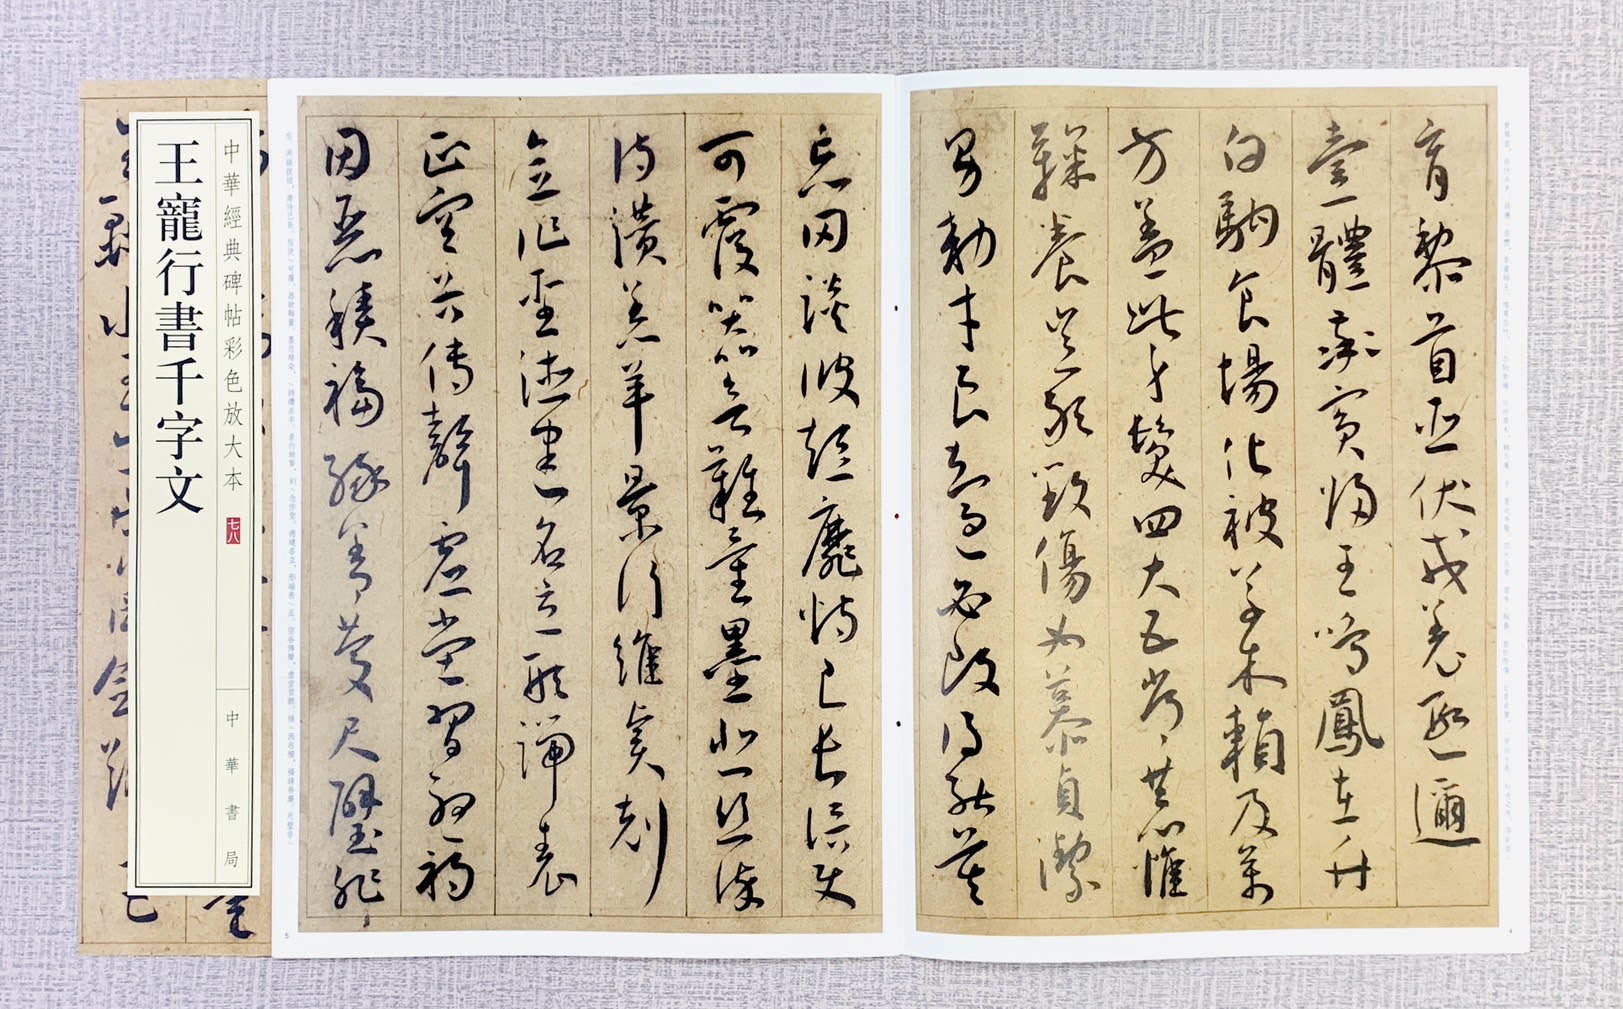 中華經典碑帖彩色放大本
七八
王寵行書千字文
中華書局
育黎首臣伏戎羌遐邇
壹體率賓歸王鳴鳳在竹
白駒食場化被草木賴及萬
方蓋此身髮四大五常恭惟
鞠養豈敢毀傷女慕貞潔
男効才良知過必改得能莫
忘罔談彼短靡恃己長信使
可覆器欲難量墨悲絲染
詩讚羔羊景行維賢剋
念作聖德建名立形端表
正空谷傳聲虛堂習聽禍
因惡積福緣善慶尺璧非
4
5